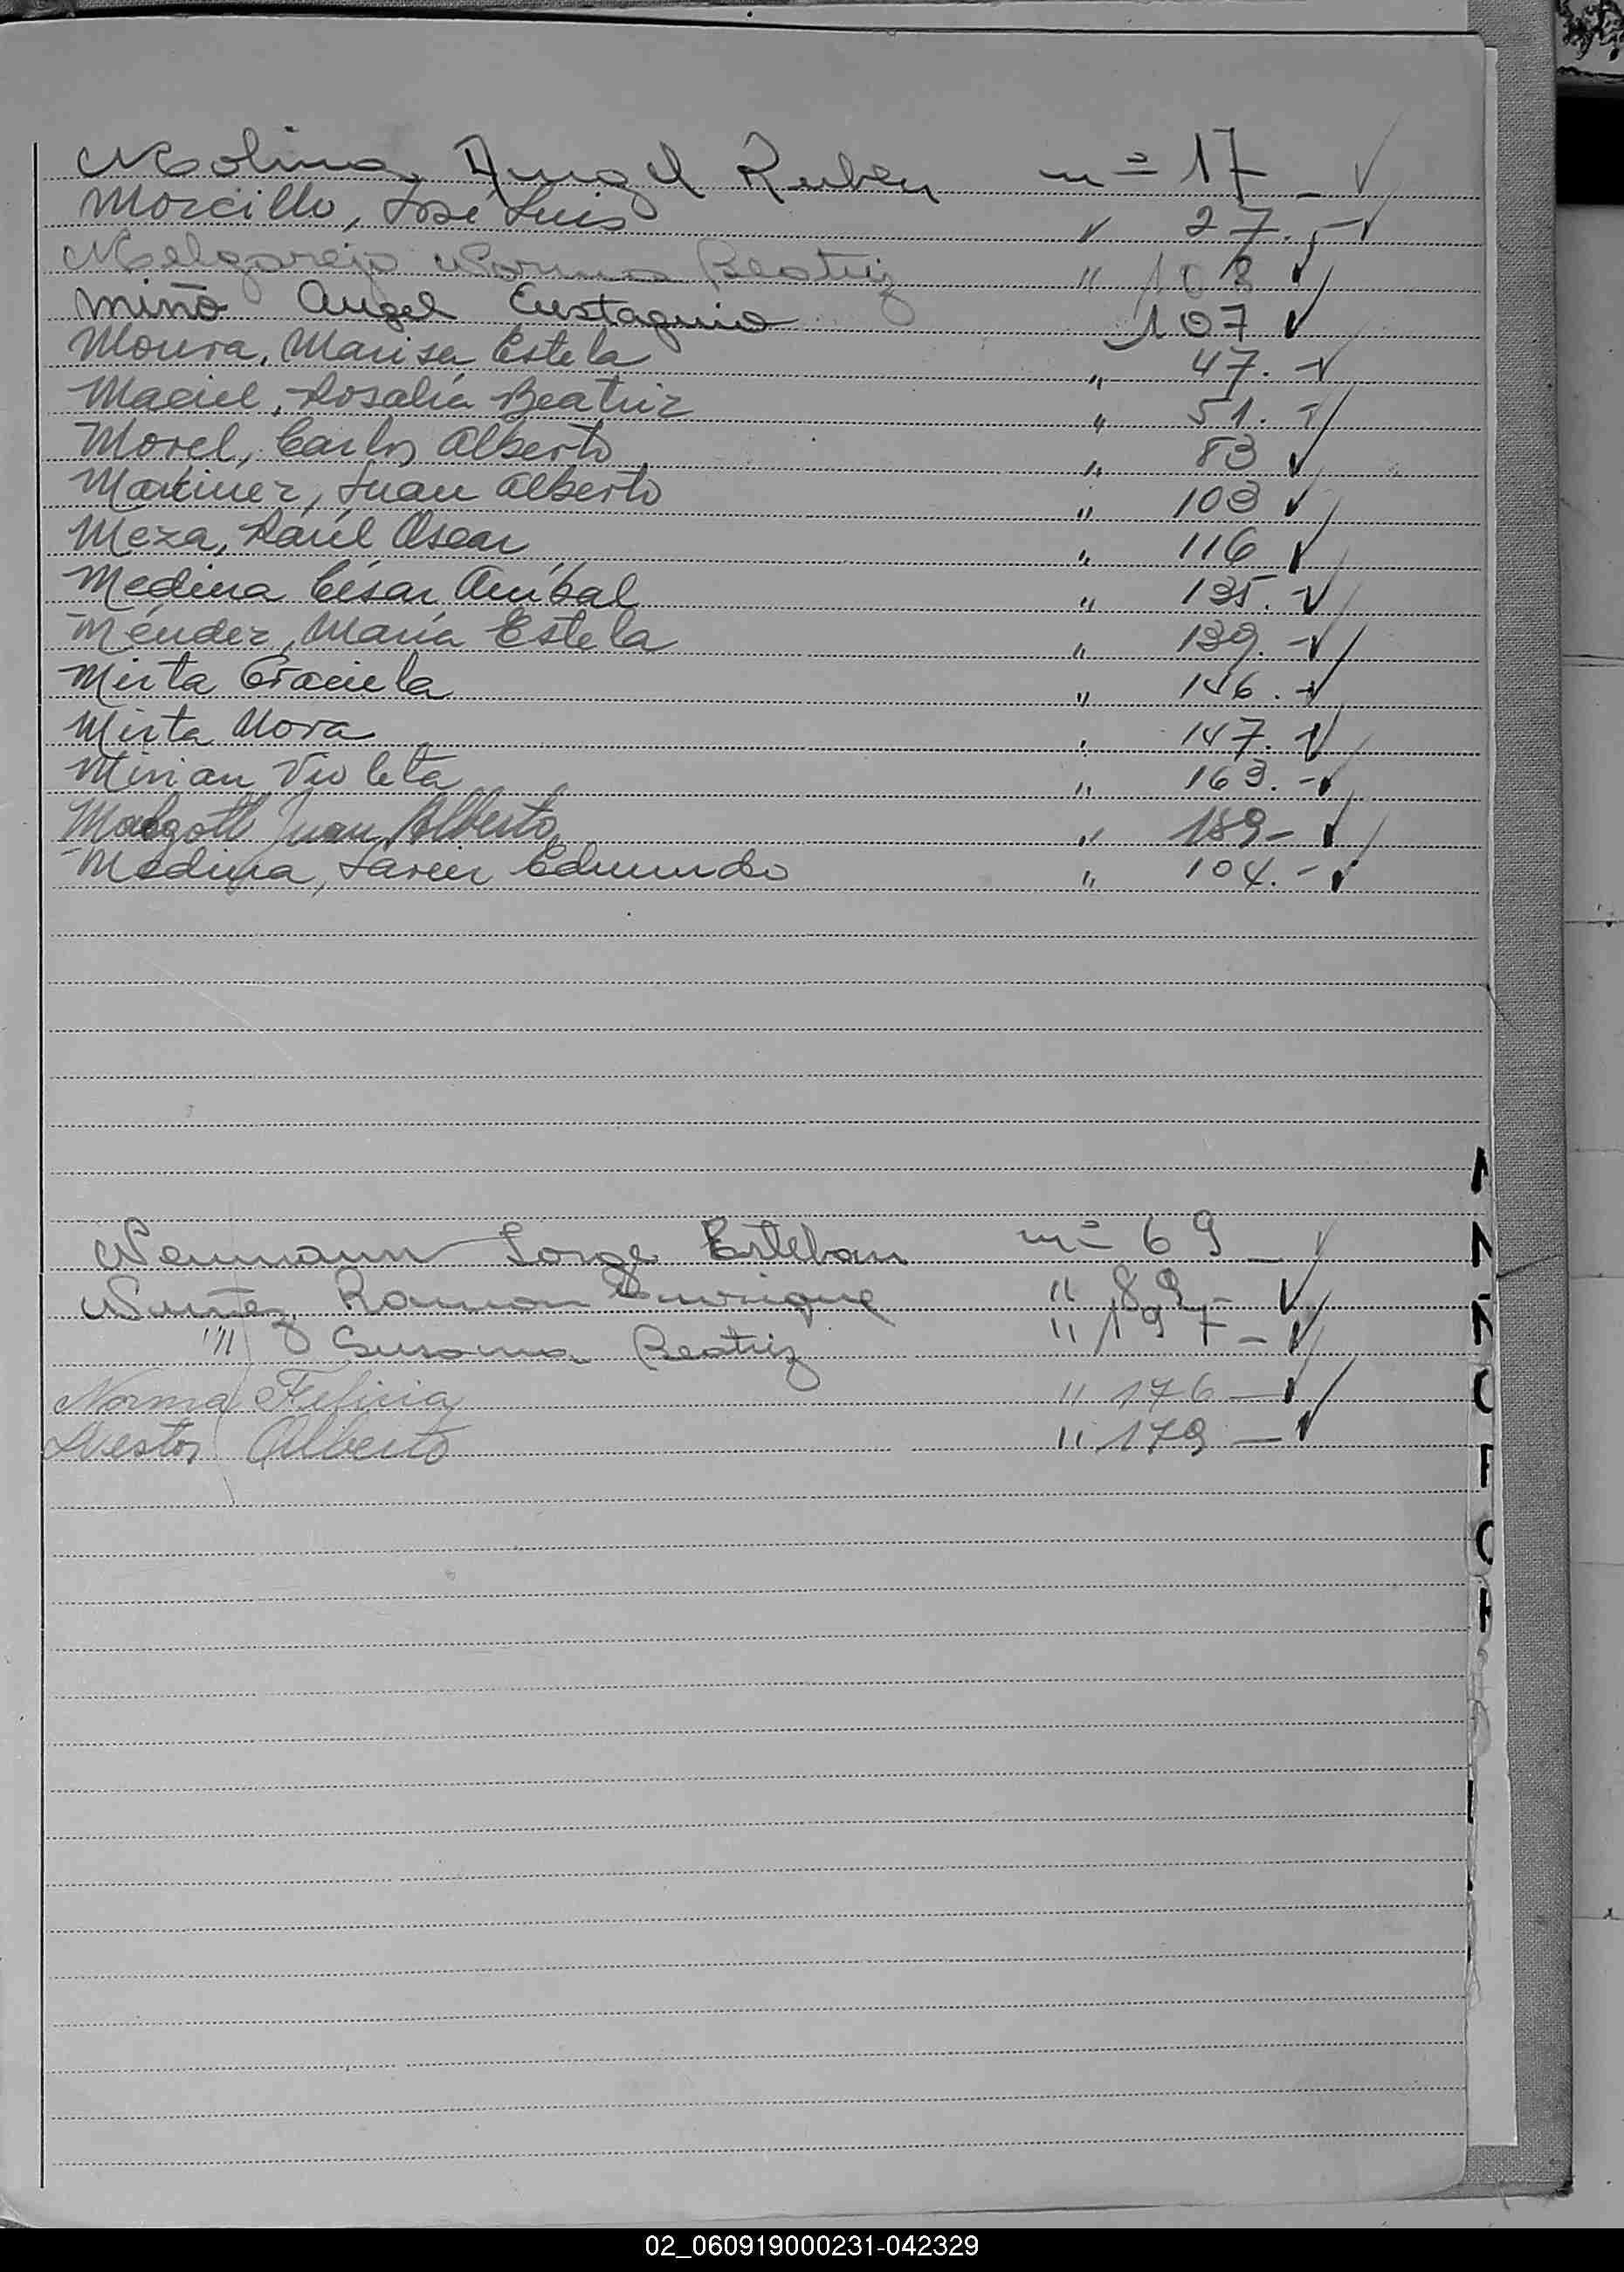 Molina, Angel Ruben nº 17 _ ✓
Morcillo, José Luis " 27. - ✓
Melgarejo Norma Beatriz " 108 ✓
Miño Angel Eustaquio 107 ✓
Moura, Marisa Estela " 47. - ✓
Maciel, Rosalía Beatriz " 51. - ✓
Morel, Carlos Alberto " 83 ✓
Martinez, Juan Alberto " 103 ✓
Meza, Raúl Oscar " 116 ✓
Medina César Aníbal " 135. - ✓
Méndez, María Estela " 139. - ✓
Mirta Graciela " 146. - ✓
Mirta Nora " 147. - ✓
Mirian Violeta " 163. - ✓
Juan Alberto " 189 - ✓
Medina, Javier Edmundo " 104. - ✓
Neumann Jorge Esteban nº 69 _ ✓
Nuñez Ramon Enrique " 89 - ✓
" Susana Beatriz " 197 - ✓
Norma Felicia " 176 - ✓
Nestor Alberto " 179 - ✓
N
Ñ
O
P
02_060919000231-042329